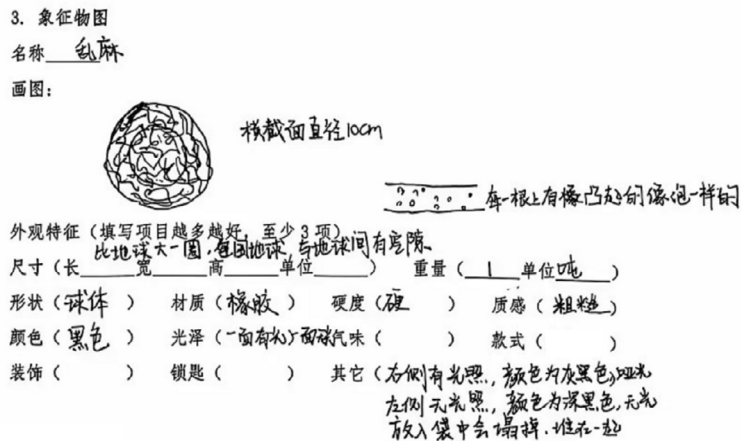 3. 象征物图
名称 乱麻
画图：
横截面直径10cm
每一根上有像凸起的像泡一样的
外观特征（填写项目越多越好，至少3项）
比地球大一圈，包围地球，与地球间有空隙。
尺寸（长 宽 高 单位 ） 重量（ 1 单位吨 ）
形状（球体 ） 材质（橡胶 ） 硬度（硬 ） 质感（粗糙 ）
颜色（黑色 ） 光泽（一面有光，一面没 气味（ ） 款式（ ）
装饰（ ） 锁匙（ ） 其它（右侧有光照，颜色为灰黑色，哑光
左侧无光照，颜色为深黑色，无光
放入袋中会塌掉，堆在一起